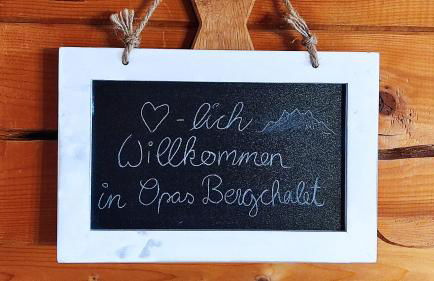 ♡-lich
Willkommen
in Opas Bergchalet